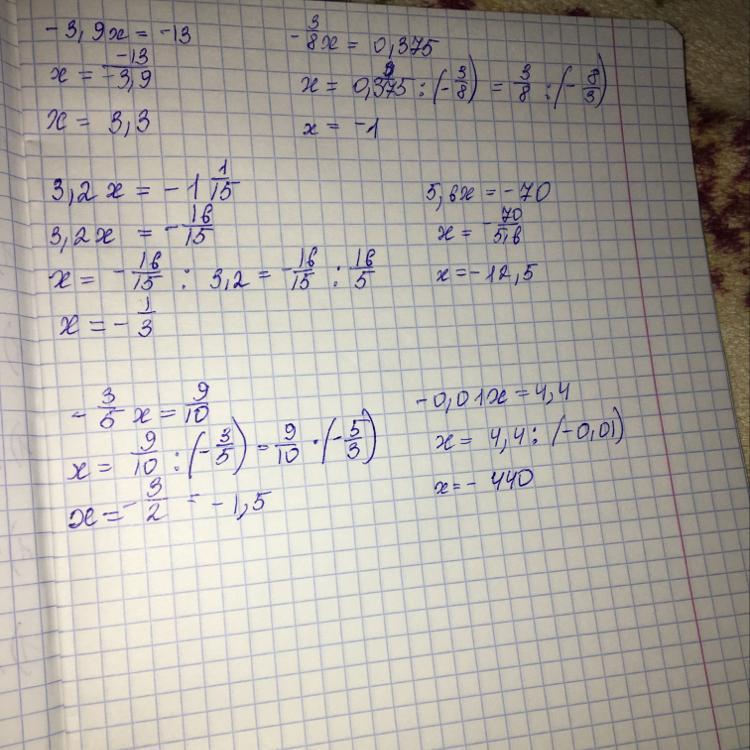 -3,9x = -13
x = -13/-3,9
x = 3,3
-3/8x = 0,375
x = 0,375 : (-3/8) = 3/8 : (-8/3)
x = -1
3,2x = -1 1/15
3,2x = -16/15
x = -16/15 : 3,2 = -16/15 : 16/5
x = -1/3
5,6x = -70
x = -70/5,6
x = -12,5
-3/5 x = 9/10
x = 9/10 : (-3/5) = 9/10 · (-5/3)
x = -3/2 = -1,5
-0,01x = 4,4
x = 4,4 : (-0,01)
x = -440